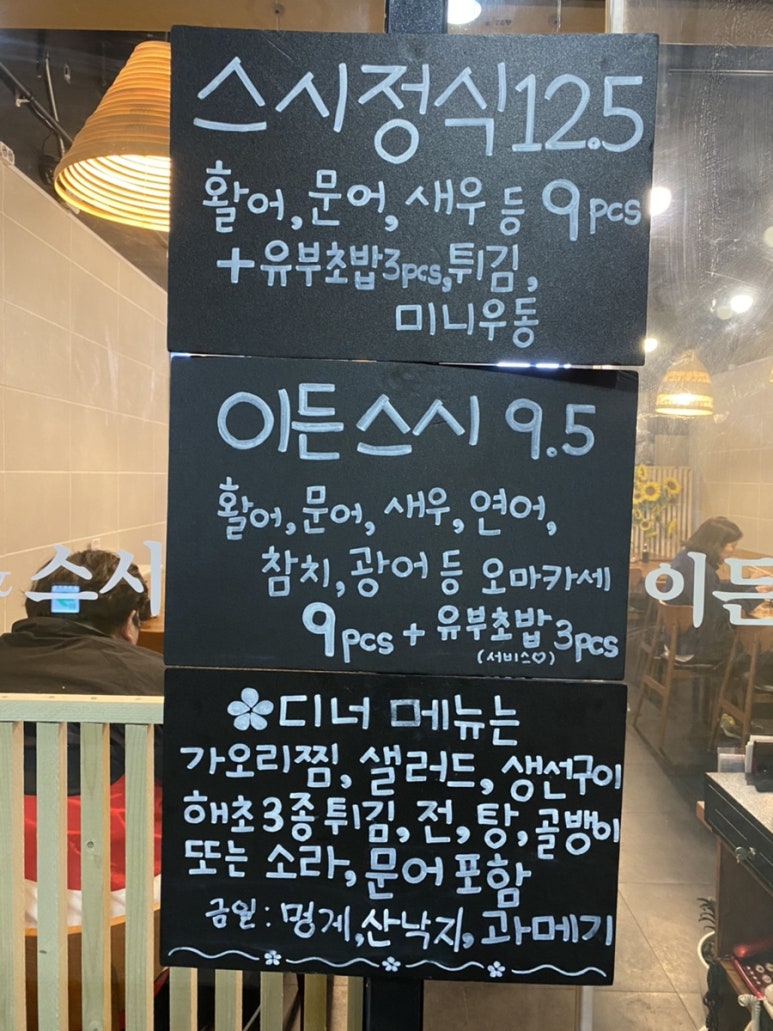 스시정식 12.5
활어, 문어, 새우 등 9pcs
+유부초밥3pcs, 튀김,
미니우동
이든스시 9.5
활어, 문어, 새우, 연어,
참치, 광어 등 오마카세
9pcs + 유부초밥 3pcs
(서비스♡)
디너 메뉴는
가오리찜, 샐러드, 생선구이
해초3종튀김, 전, 탕, 골뱅이
또는 소라, 문어 포함
금일 : 멍게, 산낙지, 과메기
스시
이든